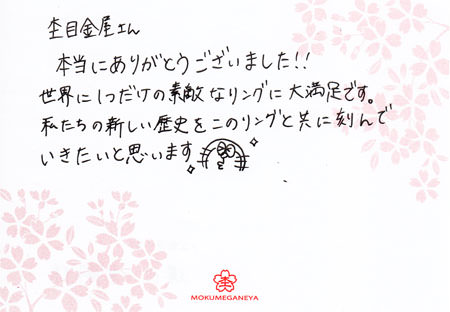 杢目金屋さん
本当にありがとうございました!!
世界に1つだけの素敵なリングに大満足です。
私たちの新しい歴史をこのリングと共に刻んで
いきたいと思います
MOKUMEGANEYA